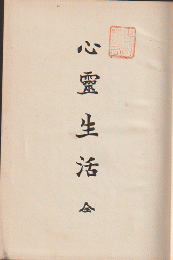 心靈生活 全